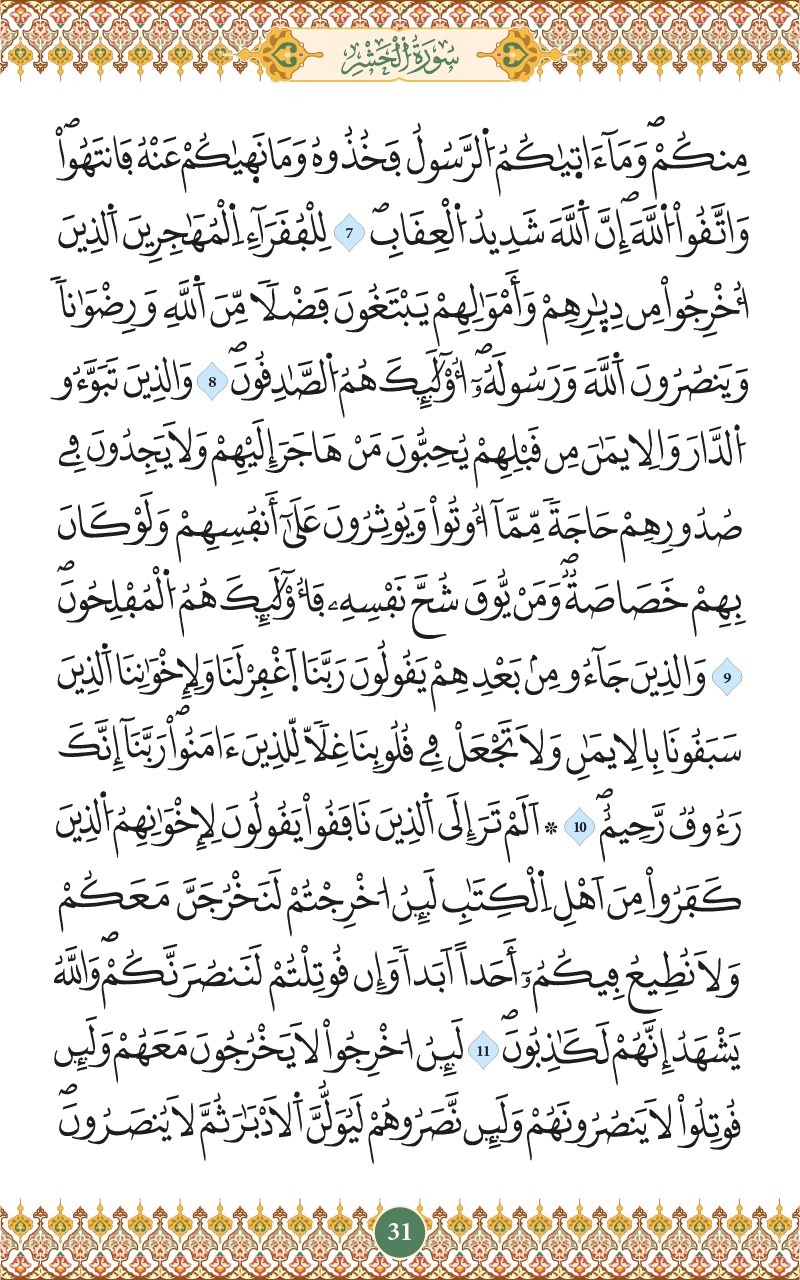 سُورَةُ الْحَشْرِ
مِنكُمْۖ وَمَآ ءَاتٜيٰكُمُ اُ۬لرَّسُولُ فَخُذُوهُ وَمَا نَهٜيٰكُمْ عَنْهُ فَانتَهُواْۖ
وَاتَّقُواْ اُ۬للَّهَۖ إِنَّ اَ۬للَّهَ شَدِيدُ اُ۬لْعِقَابِۖ 7 لِلْفُقَرَآءِ اِ۬لْمُهَٰجِرِينَ اَ۬لذِينَ
أُخْرِجُواْ مِن دِيٰ۪رِهِمْ وَأَمْوَٰلِهِمْ يَبْتَغُونَ فَضْلاٗ مِّنَ اَ۬للَّهِ وَرِضْوَٰناٗ
وَيَنصُرُونَ اَ۬للَّهَ وَرَسُولَهُۥٓۖ أُوْلَٰٓئِكَ هُمُ اُ۬لصَّٰدِقُونَۖ 8 وَالذِينَ تَبَوَّءُو
اُ۬لدَّارَ وَالِايمَٰنَ مِن قَبْلِهِمْ يُحِبُّونَ مَنْ هَاجَرَ إِلَيْهِمْ وَلَا يَجِدُونَ فِے
صُدُورِهِمْ حَاجَةٗ مِّمَّآ أُوتُواْ وَيُوثِرُونَ عَلَيٰٓ أَنفُسِهِمْ وَلَوْ كَانَ
بِهِمْ خَصَاصَةٞۖ وَمَنْ يُّوقَ شُحَّ نَفْسِهِۦ فَأُوْلَٰٓئِكَ هُمُ اُ۬لْمُفْلِحُونَۖ
9 وَالذِينَ جَآءُو مِنۢ بَعْدِهِمْ يَقُولُونَ رَبَّنَا اَ۪غْفِرْ لَنَا وَلِإِخْوَٰنِنَا اَ۬لذِينَ
سَبَقُونَا بِالِايمَٰنِ وَلَا تَجْعَلْ فِے قُلُوبِنَا غِلّاٗ لِّلذِينَ ءَامَنُواْۖ رَبَّنَآ إِنَّكَ
رَءُوفٞ رَّحِيمٌۖ 10 ۞ اَلَمْ تَرَ إِلَي اَ۬لذِينَ نَافَقُواْ يَقُولُونَ لِإِخْوَٰنِهِمُ اُ۬لذِينَ
كَفَرُواْ مِنَ اَهْلِ اِ۬لْكِتَٰبِ لَئِنُ ا۟خْرِجْتُمْ لَنَخْرُجَنَّ مَعَكُمْ
وَلَا نُطِيعُ فِيكُمُۥٓ أَحَداً اَبَداٗ وَإِن قُوتِلْتُمْ لَنَنصُرَنَّكُمْۖ وَاللَّهُ
يَشْهَدُ إِنَّهُمْ لَكَٰذِبُونَۖ 11 لَئِنُ ا۟خْرِجُواْ لَا يَخْرُجُونَ مَعَهُمْ وَلَئِن
قُوتِلُواْ لَا يَنصُرُونَهُمْ وَلَئِن نَّصَرُوهُمْ لَيُوَلُّنَّ اَ۬لَادْبَٰرَ ثُمَّ لَا يُنصَرُونَۖ
31